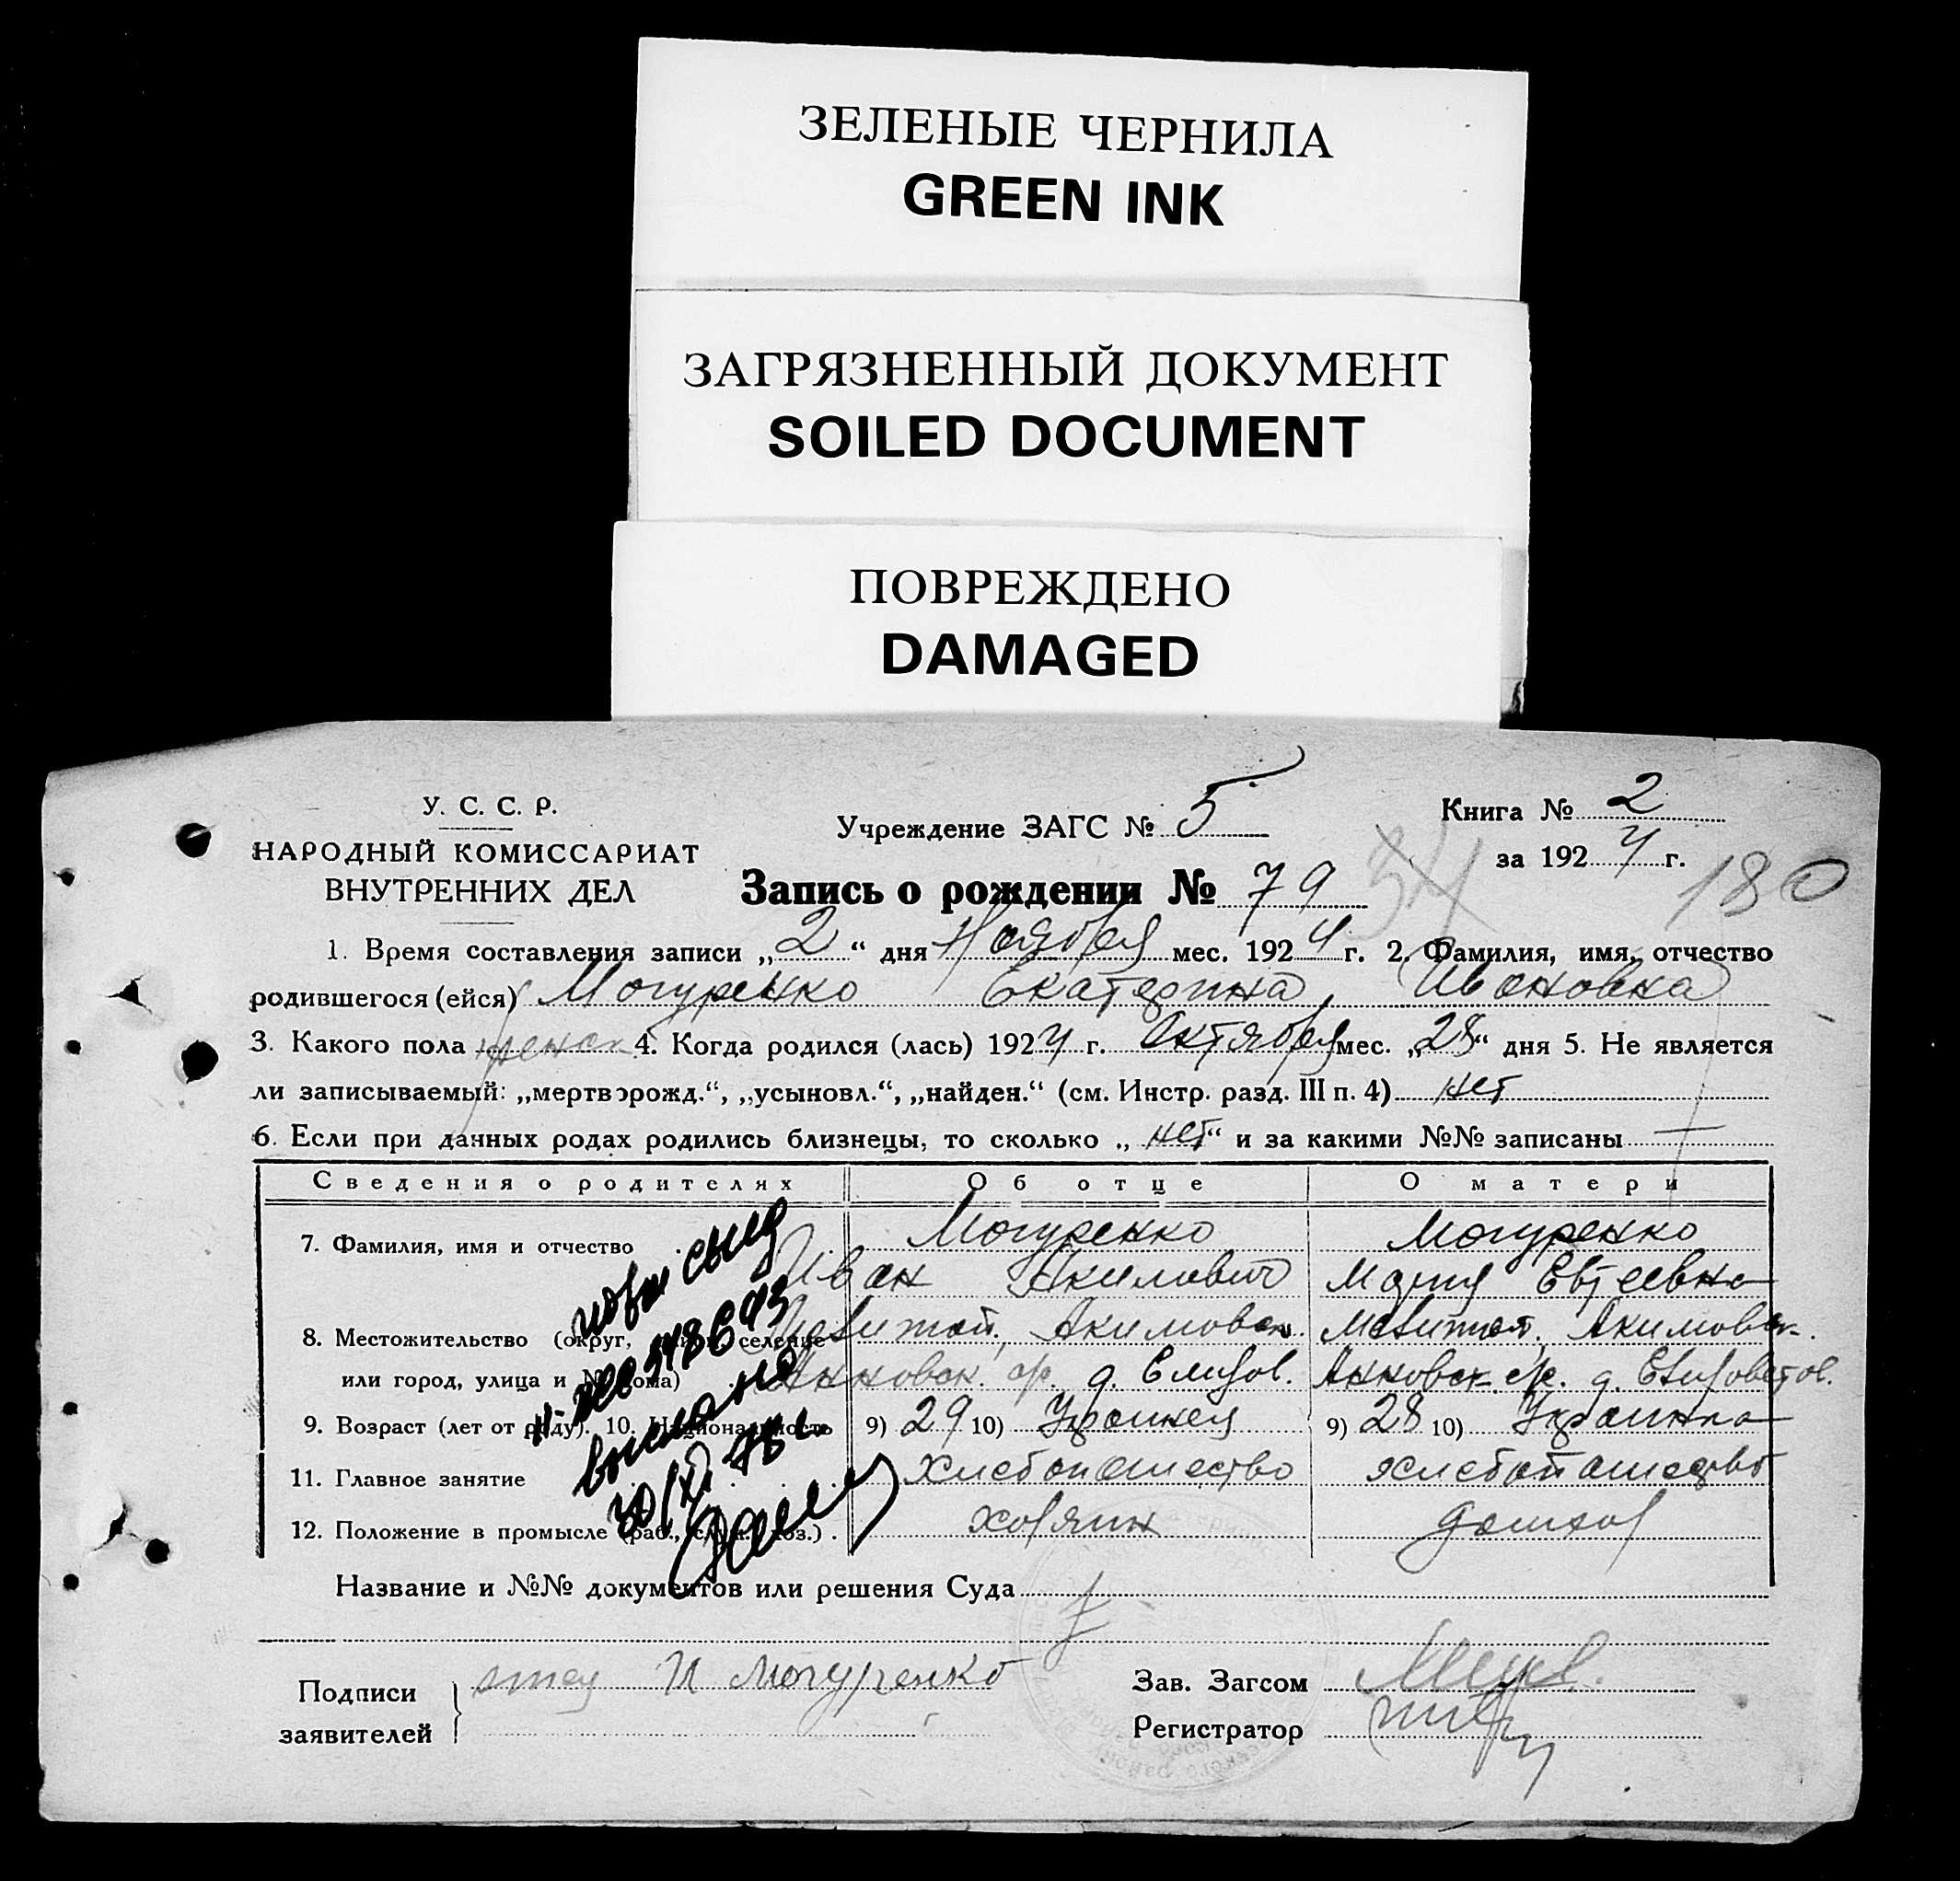 ЗЕЛЕНЫЕ ЧЕРНИЛА
GREEN INK
ЗАГРЯЗНЕННЫЙ ДОКУМЕНТ
SOILED DOCUMENT
ПОВРЕЖДЕНО
DAMAGED
У. С. С. Р.
НАРОДНЫЙ КОМИССАРИАТ
ВНУТРЕННИХ ДЕЛ
Учреждение ЗАГС № 5
Книга № 2
за 1924 г.
180
Запись о рождении № 79
34
1. Время составления записи „2“ дня Ноября мес. 1924 г. 2. Фамилия, имя, отчество
родившегося (ейся) Могуренко Екатерина, Ивановна
3. Какого пола женск 4. Когда родился (лась) 1924 г. Октября мес. „28“ дня 5. Не является
ли записываемый: „мертворожд.“, „усыновл.“, „найден.“ (см. Инстр. разд. III п. 4) нет
6. Если при данных родах родились близнецы, то сколько „нет“ и за какими №№ записаны —
Сведения о родителях Об отце О матери
7. Фамилия, имя и отчество Могуренко Могуренко
Иван Акимович Мария Евтеевна
8. Местожительство (округ, селение Мелитоп, Акимовск. Мелитоп, Акимовск.
или город, улица и № дома) Анновск. ср. д. Елизов. Анновск. ср. д. Елизоветов.
9. Возраст (лет от роду). 10. Национальность 9) 29 10) Украинец 9) 28 10) Украинка
11. Главное занятие Хлебопашество хлебопашество
12. Положение в промысле (раб., служ., хоз.) . хозяин домхоз
выслано
30/XI
Название и №№ документов или решения Суда
Подписи
заявителей
отец И Могуренко
Зав. Загсом
Регистратор